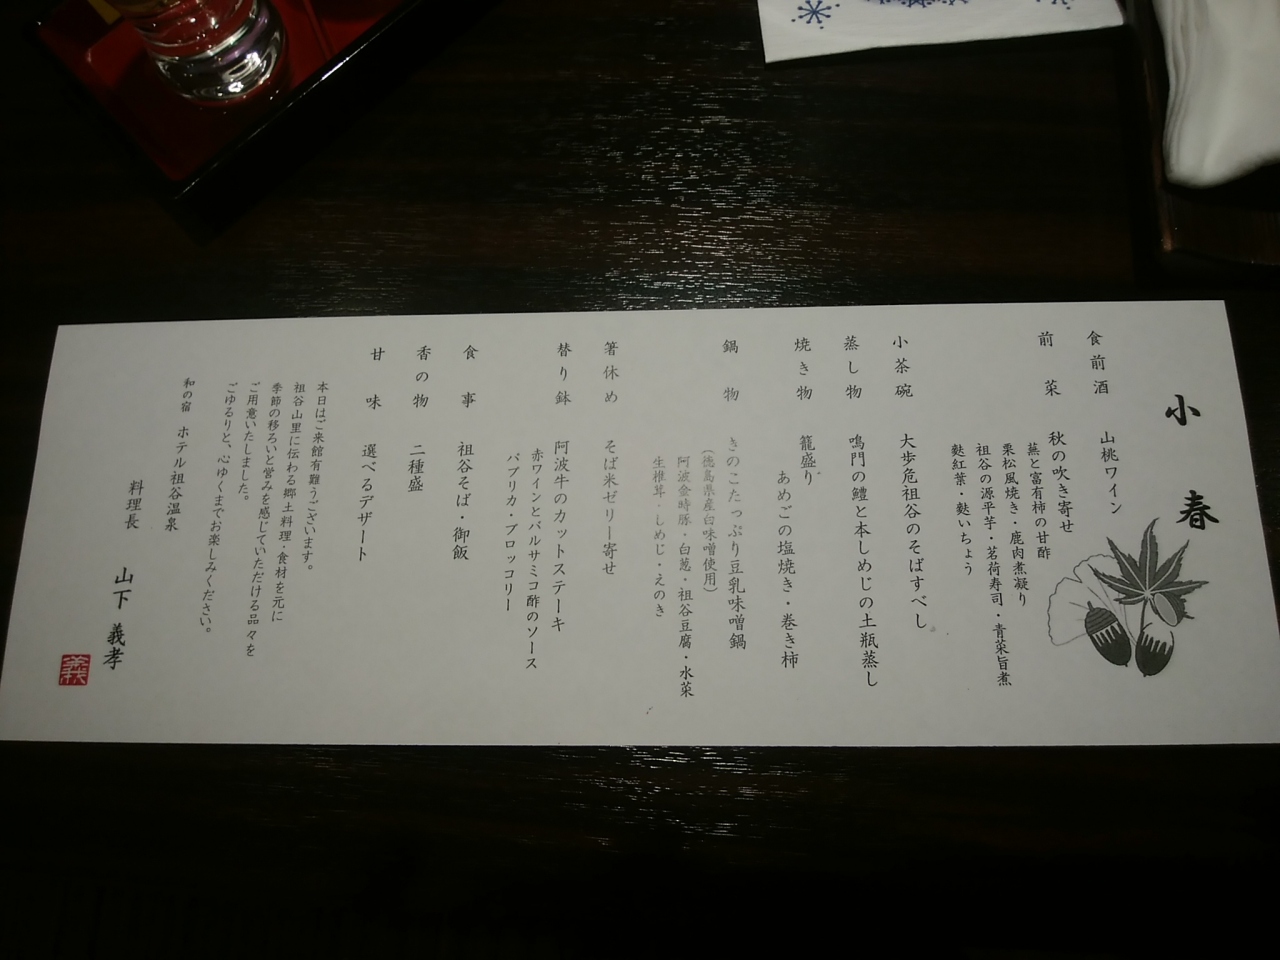 小春
食前酒　山桃ワイン
前菜　秋の吹き寄せ
蕪と富有柿の甘酢
栗松風焼き・鹿肉煮凝り
祖谷の源平芋・茗荷寿司・青菜旨煮
麩紅葉・麩いちょう
小茶碗　大歩危祖谷のそばすべし
蒸し物　鳴門の鱧と本しめじの土瓶蒸し
焼き物　籠盛り
あめごの塩焼き・巻き柿
鍋物　きのこたっぷり豆乳味噌鍋
(徳島県産白味噌使用)
阿波金時豚・白葱・祖谷豆腐・水菜
生椎茸・しめじ・えのき
箸休め　そば米ゼリー寄せ
替り鉢　阿波牛のカットステーキ
赤ワインとバルサミコ酢のソース
パプリカ・ブロッコリー
食事　祖谷そば・御飯
香の物　二種盛
甘味　選べるデザート
本日はご来館有難うございます。
祖谷山里に伝わる郷土料理・食材を元に
季節の移ろいと営みを感じていただける品々を
ご用意いたしました。
ごゆるりと、心ゆくまでお楽しみください。
和の宿　ホテル祖谷温泉
料理長　山下　義孝